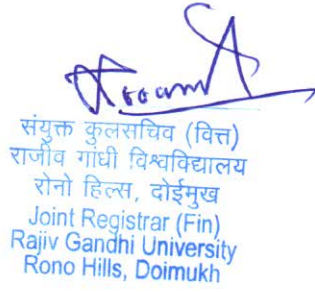 संयुक्त कुलसचिव (वित्त)
राजीव गांधी विश्वविद्यालय
रोनो हिल्स, दोईमुख
Joint Registrar (Fin)
Rajiv Gandhi University
Rono Hills, Doimukh